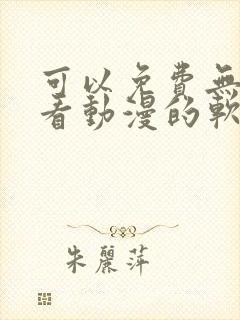 可以免費無
看動漫的軟
朱麗萍